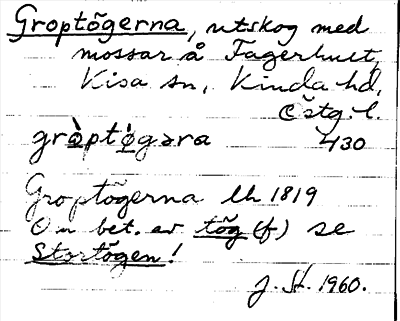 Groptögerna, utskog med
mossar å Fagerhult,
Kisa sn, Kinda hd,
Östg. l.
gròptǫ̀gəra 430
Groptögerna lh 1819
Om bet. av tög (f) se
Stortögen!
J. St. 1960.